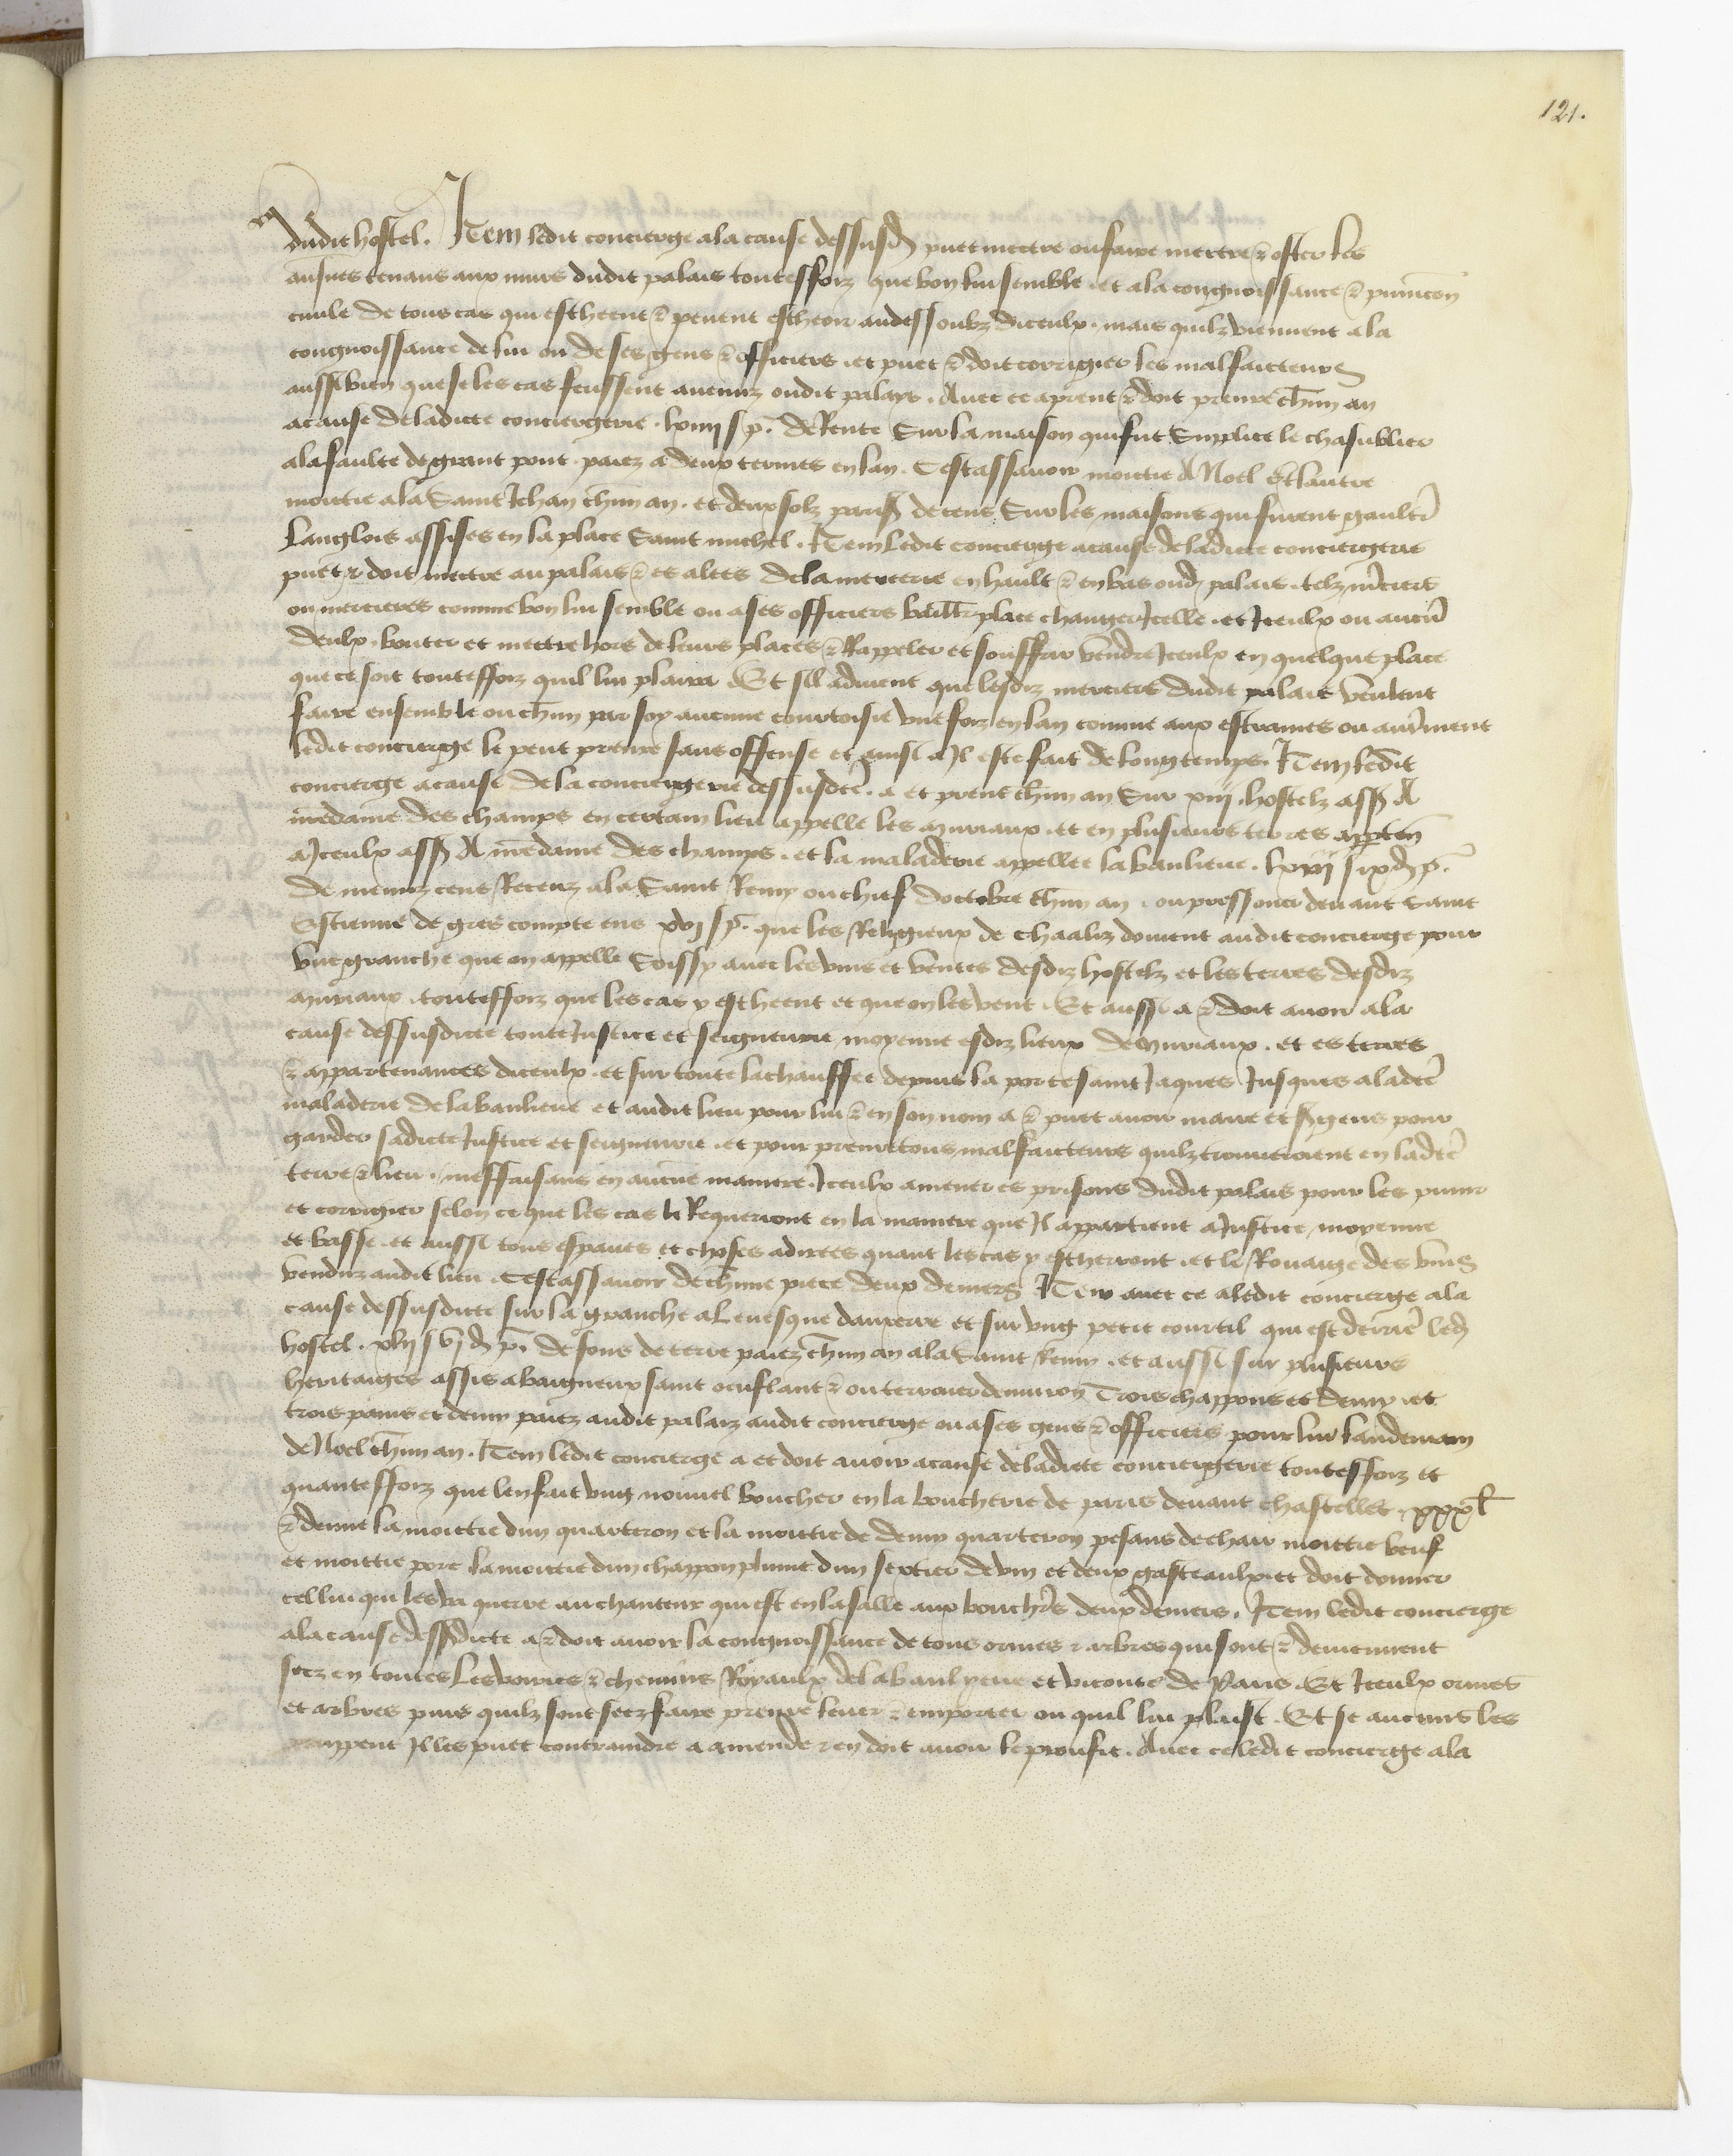 121.
dudit hostel. Item ledit concierge a la cause dessusd puet mettre ou faire mettre & oster les
ausnes tenans aux murs dudit palais touteffoiz que bon lui semble. et a la congnoissance & punicon
civile de tous cas qui escheent & pevent escheoir au dessoubz diceulx. mais quilz viennent a la
congnoissance de lui ou de ses gens & officiers. et puet & doit corrigier les malfaicteurs
aussi bien que se les cas feussent avenuz oudit palays. Avec ce a prent & doit prenre chun an
a cause de ladicte conciergerie. lxiiij s p. de Rente Sur la maison qui fut Simplice le chasublier
a la saulte de grant pont. paiez a deux termes en lan. Cestassavoir moictie A Noel & lautre
moictie a la Saint Jehan chun an. et deux solz paris de cens Sur les maisons qui furent gaultr
Langlois assises en la place Saint michel. Item Ledit concierge a cause de ladicte conciergerie
puet & doit mettre au palais & es alees de la mercerie en hault & en bas oud palais. telz mciers
ou mercieres comme bon lui semble ou a ses officiers baillr place changer Icelle. et Iceulx ou aucun
deulx. bouter et mettre hors de leurs places & Rappeler et souffrir vendre Iceulx en quelque place
que ce soit touteffoiz quil lui plaira. Et sil advient que lesdiz merciers dudit palais veulent
faire ensemble ou chun par soy aucune courtoisie une foiz en lan comme aux estraines ou autrement
ledit concierge le peut prenre sans offense et ainsi a Il este fait de long temps. Item ledit
concierge a cause de la conciergerie dessusdcte. a et prent chun an Sur xiiij. hostelz ass A
nredame des champs en certain lieu appelle les muriaux. et en plusieurs terres apptein
a Iceulx ass A nredame des champs. et la maladerie appellee la banlieue. lxvij s ix d p.
de menuz cens Receuz a la Saint Remy ou chief doctobre chun an. ou pressouer devant Saint
Estienne de gres compte ens xvj s p. que les Religieux de chaaliz doivent audit concierge pour
une granche que on appelle Soissy avec les vins et ventes desdiz hostelz et les terres desdiz
muriaux. touteffoiz que les cas y escheent et que on les vent. Et aussi a & doit avoir a la
cause dessusdicte toute Justice et seigneurie moyenne esdiz lieux de muriaux. et es terres
& appartenances diceulx. et sur toute la chaussee depuis la porte saint Jaques Jusques a ladcte
maladerie de la banlieue et audit lieu pour lui & en son nom a & puet avoir maire et sgens pour
garder sadicte Justice et seigneurie. et pour prenre tous malfaicteurs quilz trouveroient en ladcte
terre & lieu. meffaisans en aucune maniere. Iceulx amener es prisons dudit palais pour les punir
et corrigier selon ce que les cas le Requerront en la maniere que Il appartient a Justice moyenne
et basse. et aussi tous espaves et choses adirees quant les cas y escherront. et le Rouaige des vins
venduz audit lieu. Cestassavoir de chune piece deux deniers. Item avec ce a ledit concierge a la
cause dessusdicte sur la granche a Levesque daucerre et sur ung petit courtil qui est derrie led
hostel. xvij s vj d p. de fons de terre paiez chun an a la Saint Remy. et aussi sur plusieurs
heritaiges assis a baigneux saint oruflant & ou terrouer denviron Trois chappons et demy. et
trois pains et demy paiez audit palaiz audit concierge ou a ses gens & officiers pour lui landemain
de Noel chun an. Item ledit concierge a et doit avoir a cause de ladicte conciergerie touteffoiz et
quanteffoiz que len fait ung nouvel boucher en la boucherie de paris devant chastellet. xxx l
& demie la moictie dun quarteron et la moictie de demy quarteron pesans de chair moictie beuf
et moictie porc la moictie dun chappon plume dun sextier de vin et deux gasteaulx et doit donner
cellui qui les va querre au chanteur qui est en la salle aux bouchrs deux deniers. Item ledit concierge
a la cause dessdicte a & doit avoir la congnoissance de tous ormes & arbres qui sont & deviennent
secz en toutes les voiries & chemins Royaulx de la banlyeue et viconte de Paris. Et Iceulx ormes
et arbres puis quilz sont secz faire prenre lever & emporter ou quil lui plaist. Et se aucuns les
couppent Il les puet contraindre a amende & en doit avoir le proufit. Avec ce ledit concierge a la